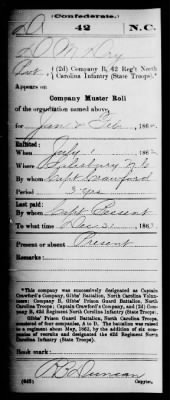 (Confederate.)
D 42 N.C.
D M
Pvt., (2d) Company B, 42 Reg't North
Carolina Infantry (State Troops).*
Appears on
Company Muster Roll
of the organization named above,
for Jan & Feb, 186
Enlisted:
When July 1, 186
Where Salisbury N C
By whom Capt Crawford
Period 3 yrs
Last paid:
By whom Capt
To what time Dec 31, 186
Present or absent Present
Remarks:
*This company was successively designated as Captain
Crawford's Company, Gibbs' Battalion, North Carolina Volun-
teers; Company B, Gibbs' Prison Guard Battalion, North
Carolina Troops; Captain Crawford's Company, and (2d) Com-
pany B, 42d Regiment North Carolina Infantry (State Troops).
Gibbs' Prison Guard Battalion, North Carolina Troops,
consisted of four companies, A to D. The battalion was raised
to a regiment about May, 1862, by the addition of six com-
panies of recruits and designated the 42d Regiment North
Carolina Infantry (State Troops).
Book mark:
Duncan
(642) Copyist.